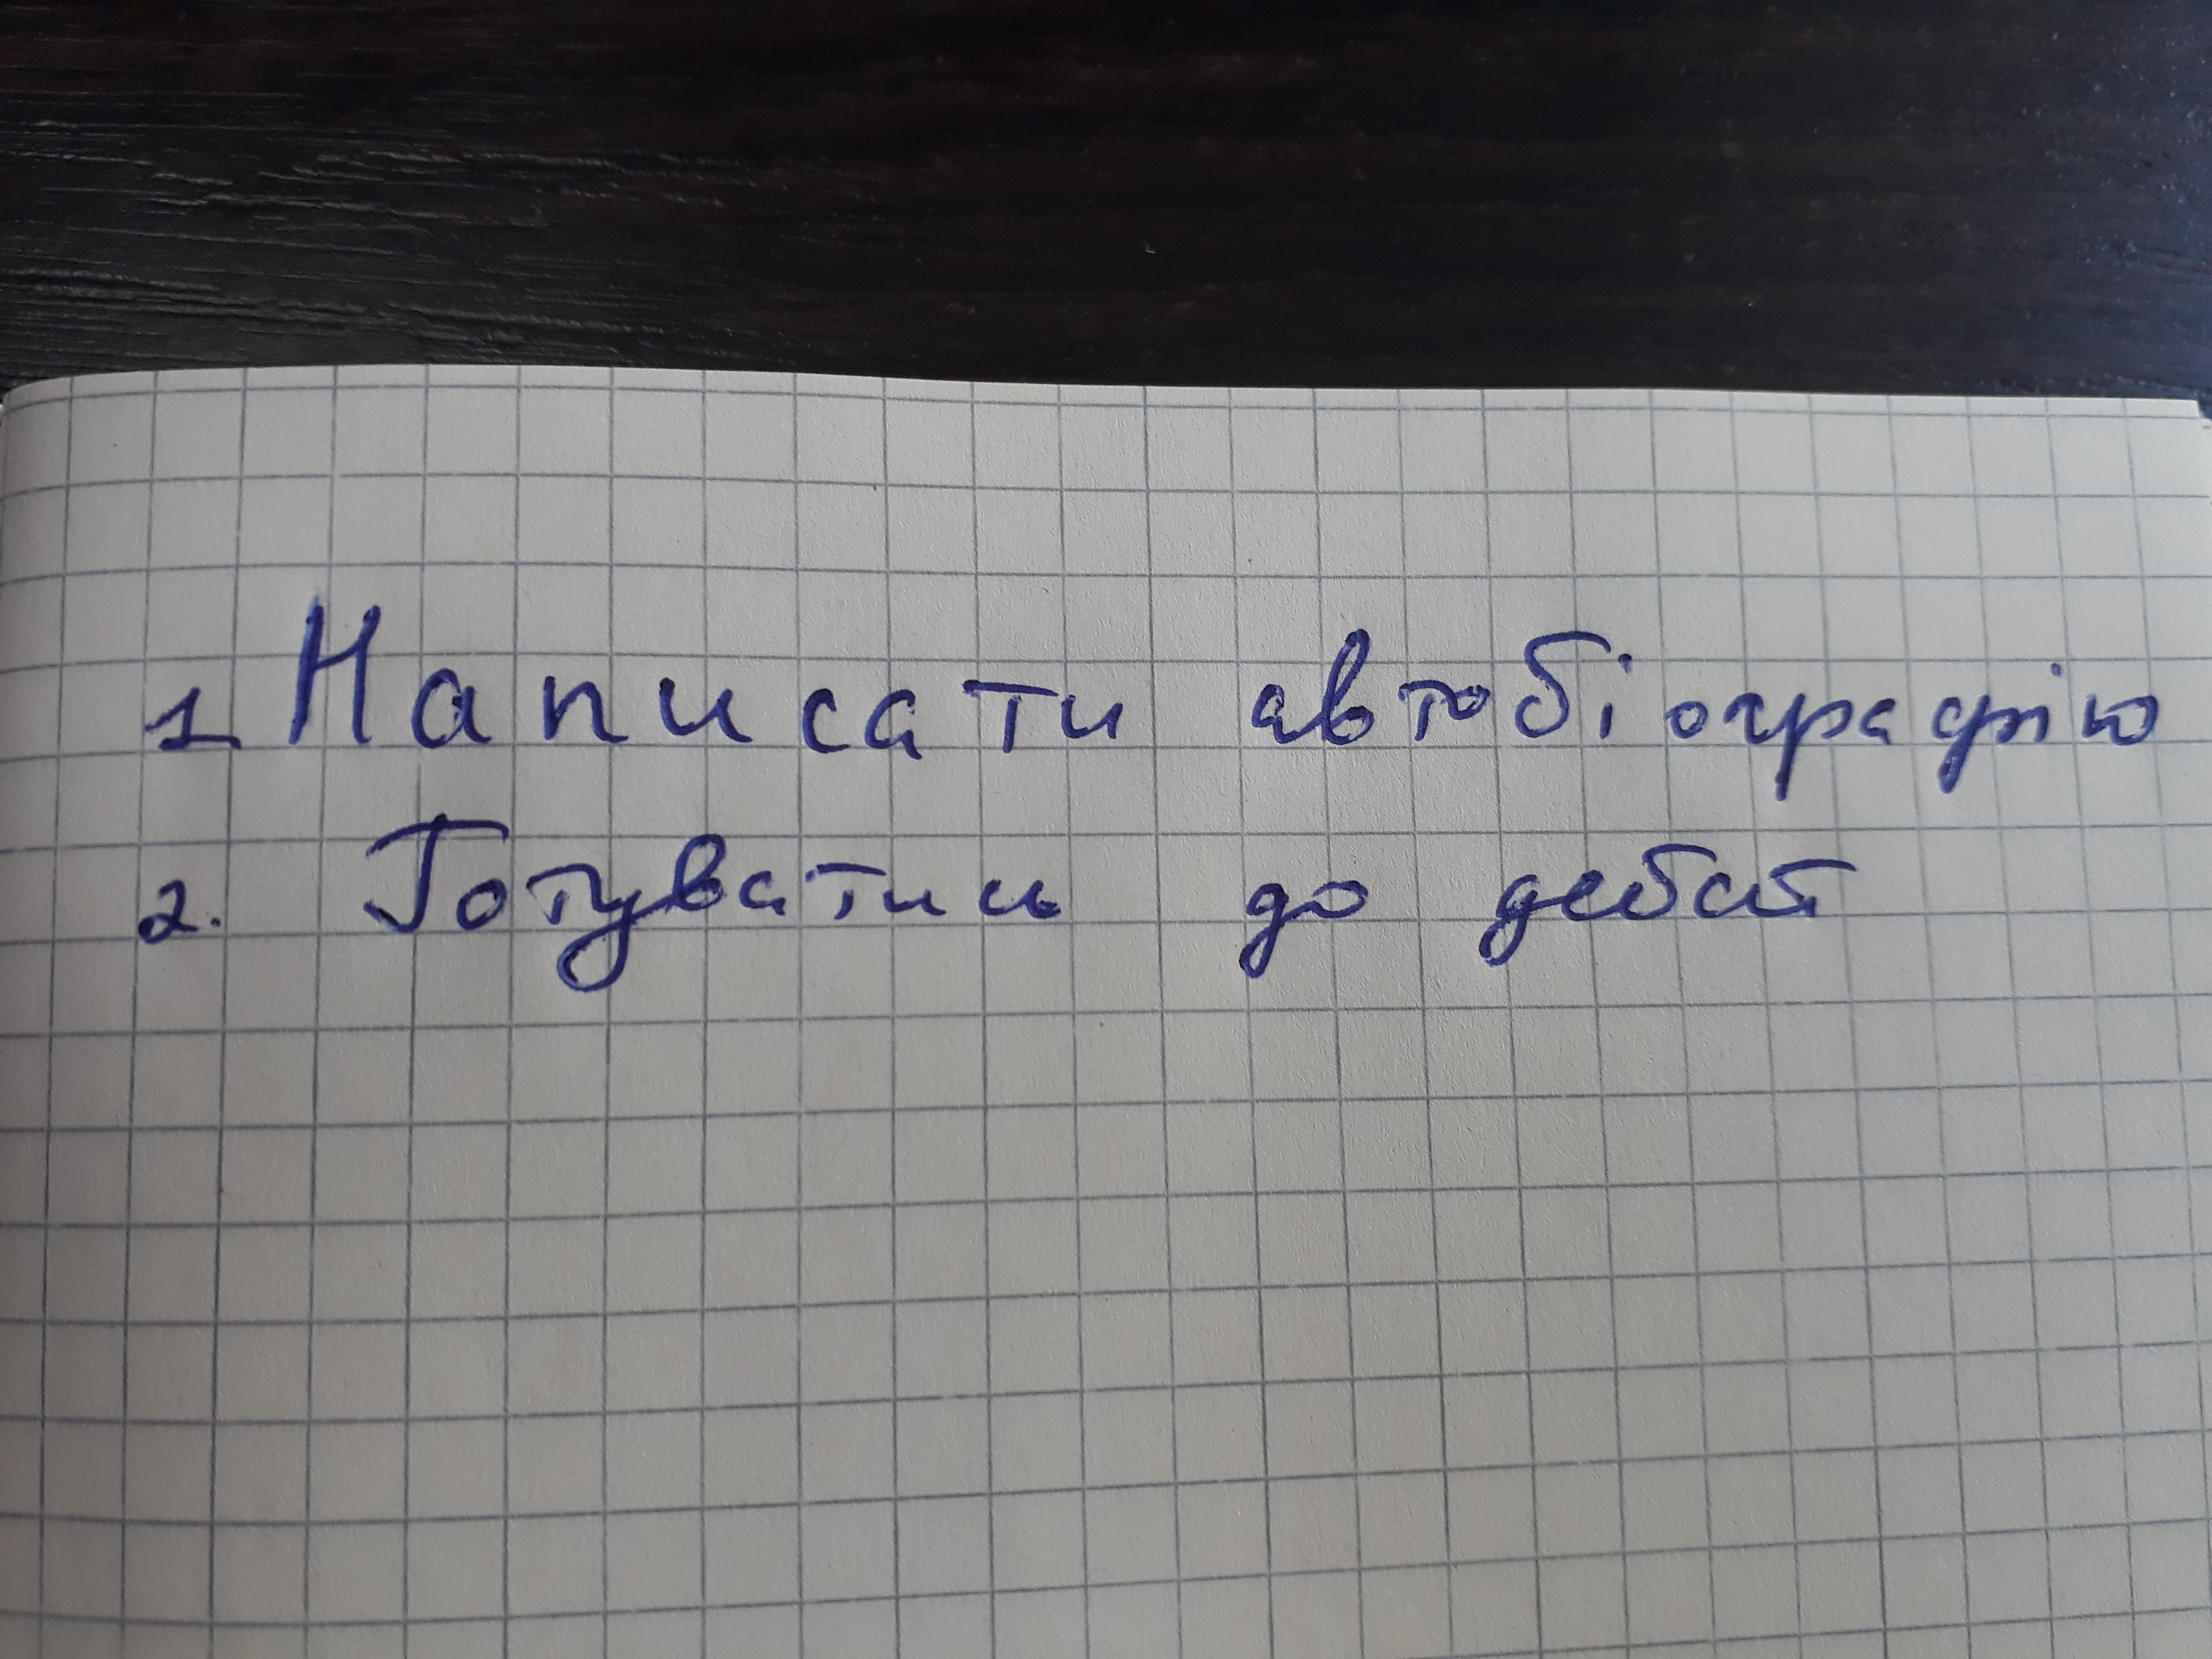 1. Написати автобіографію
2. Готуватись до дебат